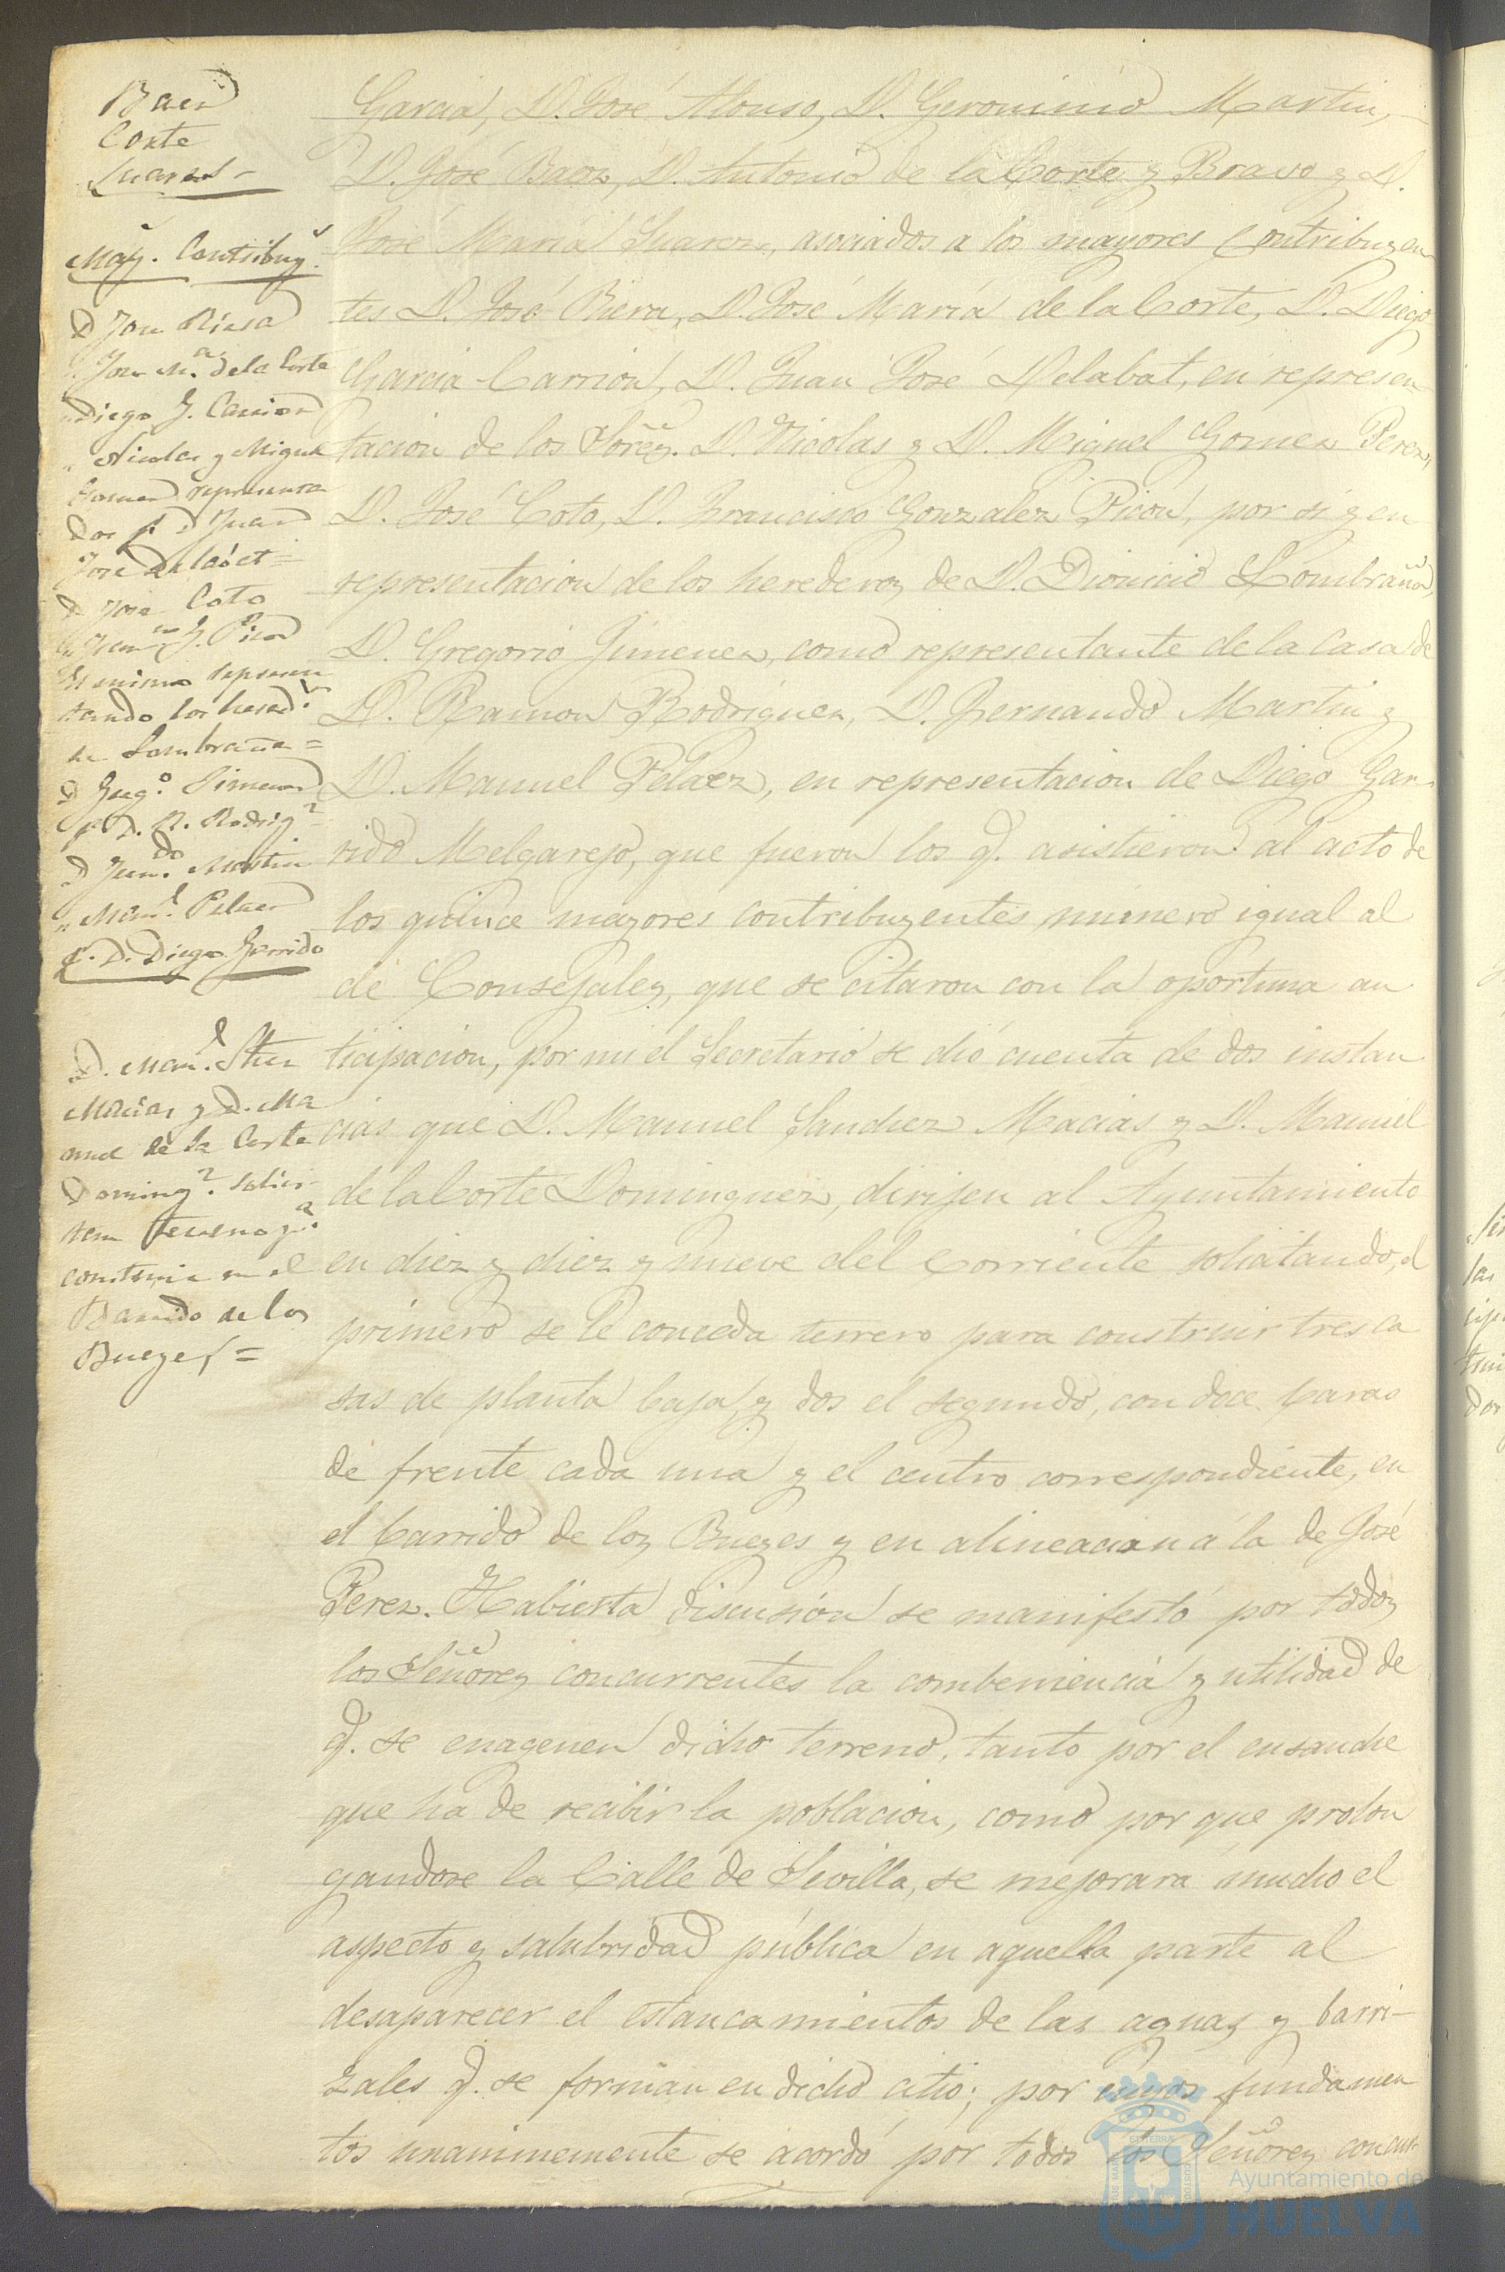 Baez
Corte
Suarez =
May.s Contribuy.s
D. Jose Riera
" Jose M.a de la Corte
" Diego G. Carrion
" Nicolas y Miguel
Gomez representa
dos p.r D. Juan
Jose Delabat =
D. Jose Coto
" Fran.co G. Picon
El mismo represen
tando los hered.s
de Lombraña =
D. Greg.o Jimenez
p.r D. R. Rodrig.z
D. Fern.do Martin
" Man.l Pelaez
p. D. Diego Garrido
D. Man.l Shez
Macias y D. Ma
nuel de la Corte
Doming.z solici-
tan terreno p.a
construir en el
Barrido de los
Bueyes =
Garcia, D. José Alonso, D. Geronimo Martin,
D. José Baez, D. Antonio de la Corte y Bravo y D.
José María Suarez, asociados a los mayores contribuyen
tes D. José Riera, D. José María de la Corte, D. Diego
Garcia Carrion, D. Juan José Delabat, en represen
tacion de los Señores. D. Nicolas y D. Miguel Gomez Perez,
D. José Coto, D. Francisco Gonzalez Picon, por sí y en
representacion de los herederos de D. Dionicio Lombraña,
D. Gregorio Jimenez, como representante de la Casa de
D. Ramon Rodriguez, D. Fernando Martin y
D. Manuel Pelaez, en representacion de Diego Gar
rido Melgarejo, que fueron los q. asistieron al acto de
los quince mayores contribuyentes, número igual al
de Consejales, que se citaron con la oportuna an
ticipacion, por mi el Secretario se dió cuenta de dos instan
cias que D. Manuel Sanchez Macias y D. Manuel
de la Corte Dominguez, dirijen al Ayuntamiento
en diez y diez y nueve del corriente solicitando, el
primero se le conceda terrero para construir tres ca
sas de planta baja, y dos el segundo, con doce baras
de frente cada una y el centro correspondiente, en
el barrido de los Bueyes y en alineacion á la de José
Perez. Habierta discusion se manifestó por todos
los Señores concurrentes la combeniencia y utilidad de
q. se enagenen dicho terreno, tanto por el ensanche
que ha de recibir la poblacion, como por que prolon
gandose la Calle de Sevilla, se mejorará mucho el
aspecto y salubridad pública en aquella parte al
desaparecer el estancamientos de las aguas y barri-
zales q. se forman en dicho citio; por cuyos fundamen
tos unanimemente se acordó por todos los Señores concur-
Ayuntamiento de
HUELVA